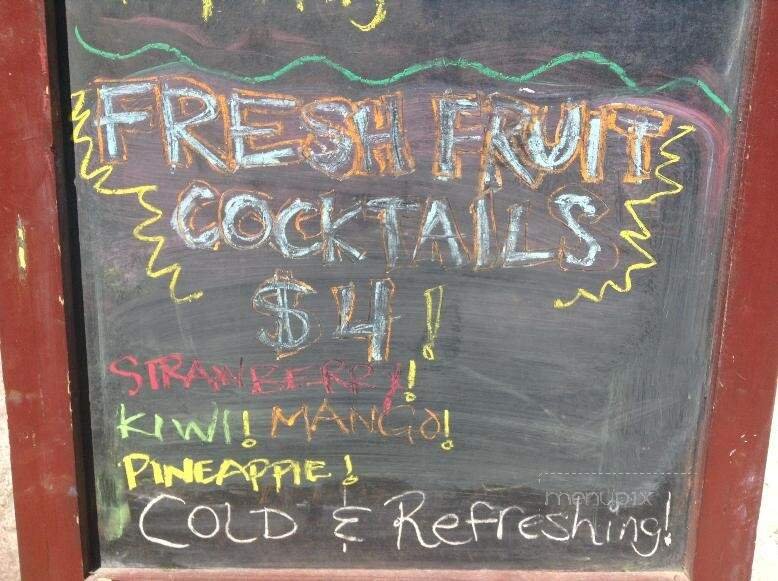 FRESH FRUIT
COCKTAILS
$4!
STRAWBERRY!
KIWI! MANGO!
PINEAPPLE!
COLD & Refreshing!
menupix